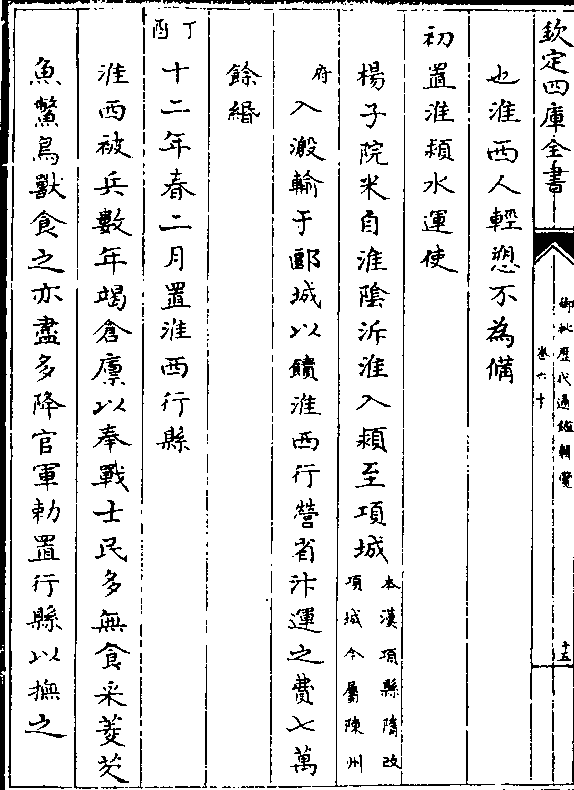 欽定四庫全書
御批歷代通鑑輯覽
卷六十
十五
也淮西人輕愬不為備
初置淮潁水運使
楊子院米自淮陰泝淮入潁至項城
本漢項縣隋改
項城今屬陳州
府
入潊輸于郾城以饋淮西行營省汴運之費七萬
餘緡
丁酉
十二年春二月置淮西行縣
淮西被兵數年竭倉廪以奉戰士民多無食采菱芡
魚鱉鳥獸食之亦盡多降官軍勅置行縣以撫之